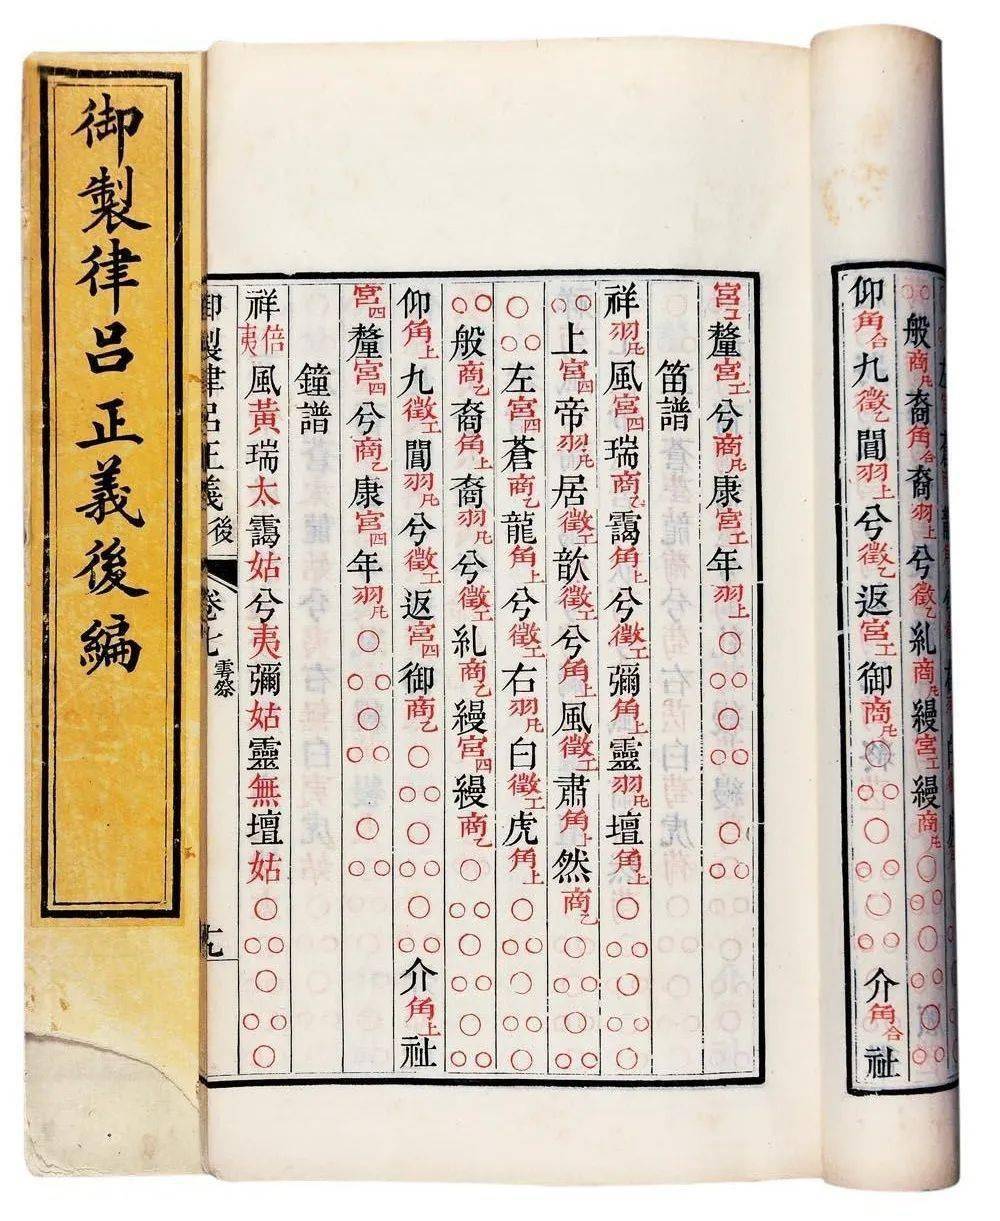 御製律呂正義後編
般商凡裔角合裔羽上兮徵乙糺商凡縵宮工縵商凡
仰角合九徵乙閶羽上兮徵乙返宮工御商凡介角合祉
宮工釐宮工兮商凡康宮工年羽上
笛譜
祥羽凡風宮四瑞商乙靄角上兮徵工彌角上靈羽凡壇角上
上宮四帝羽凡居徵工歆徵工兮角上風徵工肅角上然商乙
左宮四蒼商乙龍角上兮徵工右羽凡白徵工虎角上
般商乙裔角上裔羽凡兮徵工糺商乙縵宮四縵商乙
仰角上九徵工閶羽凡兮徵工返宮四御商乙介角上祉
宮四釐宮四兮商乙康宮四年羽凡
鐘譜
祥倍夷風黃瑞太靄姑兮夷彌姑靈無壇姑
御製律呂正義後 卷七 雩祭